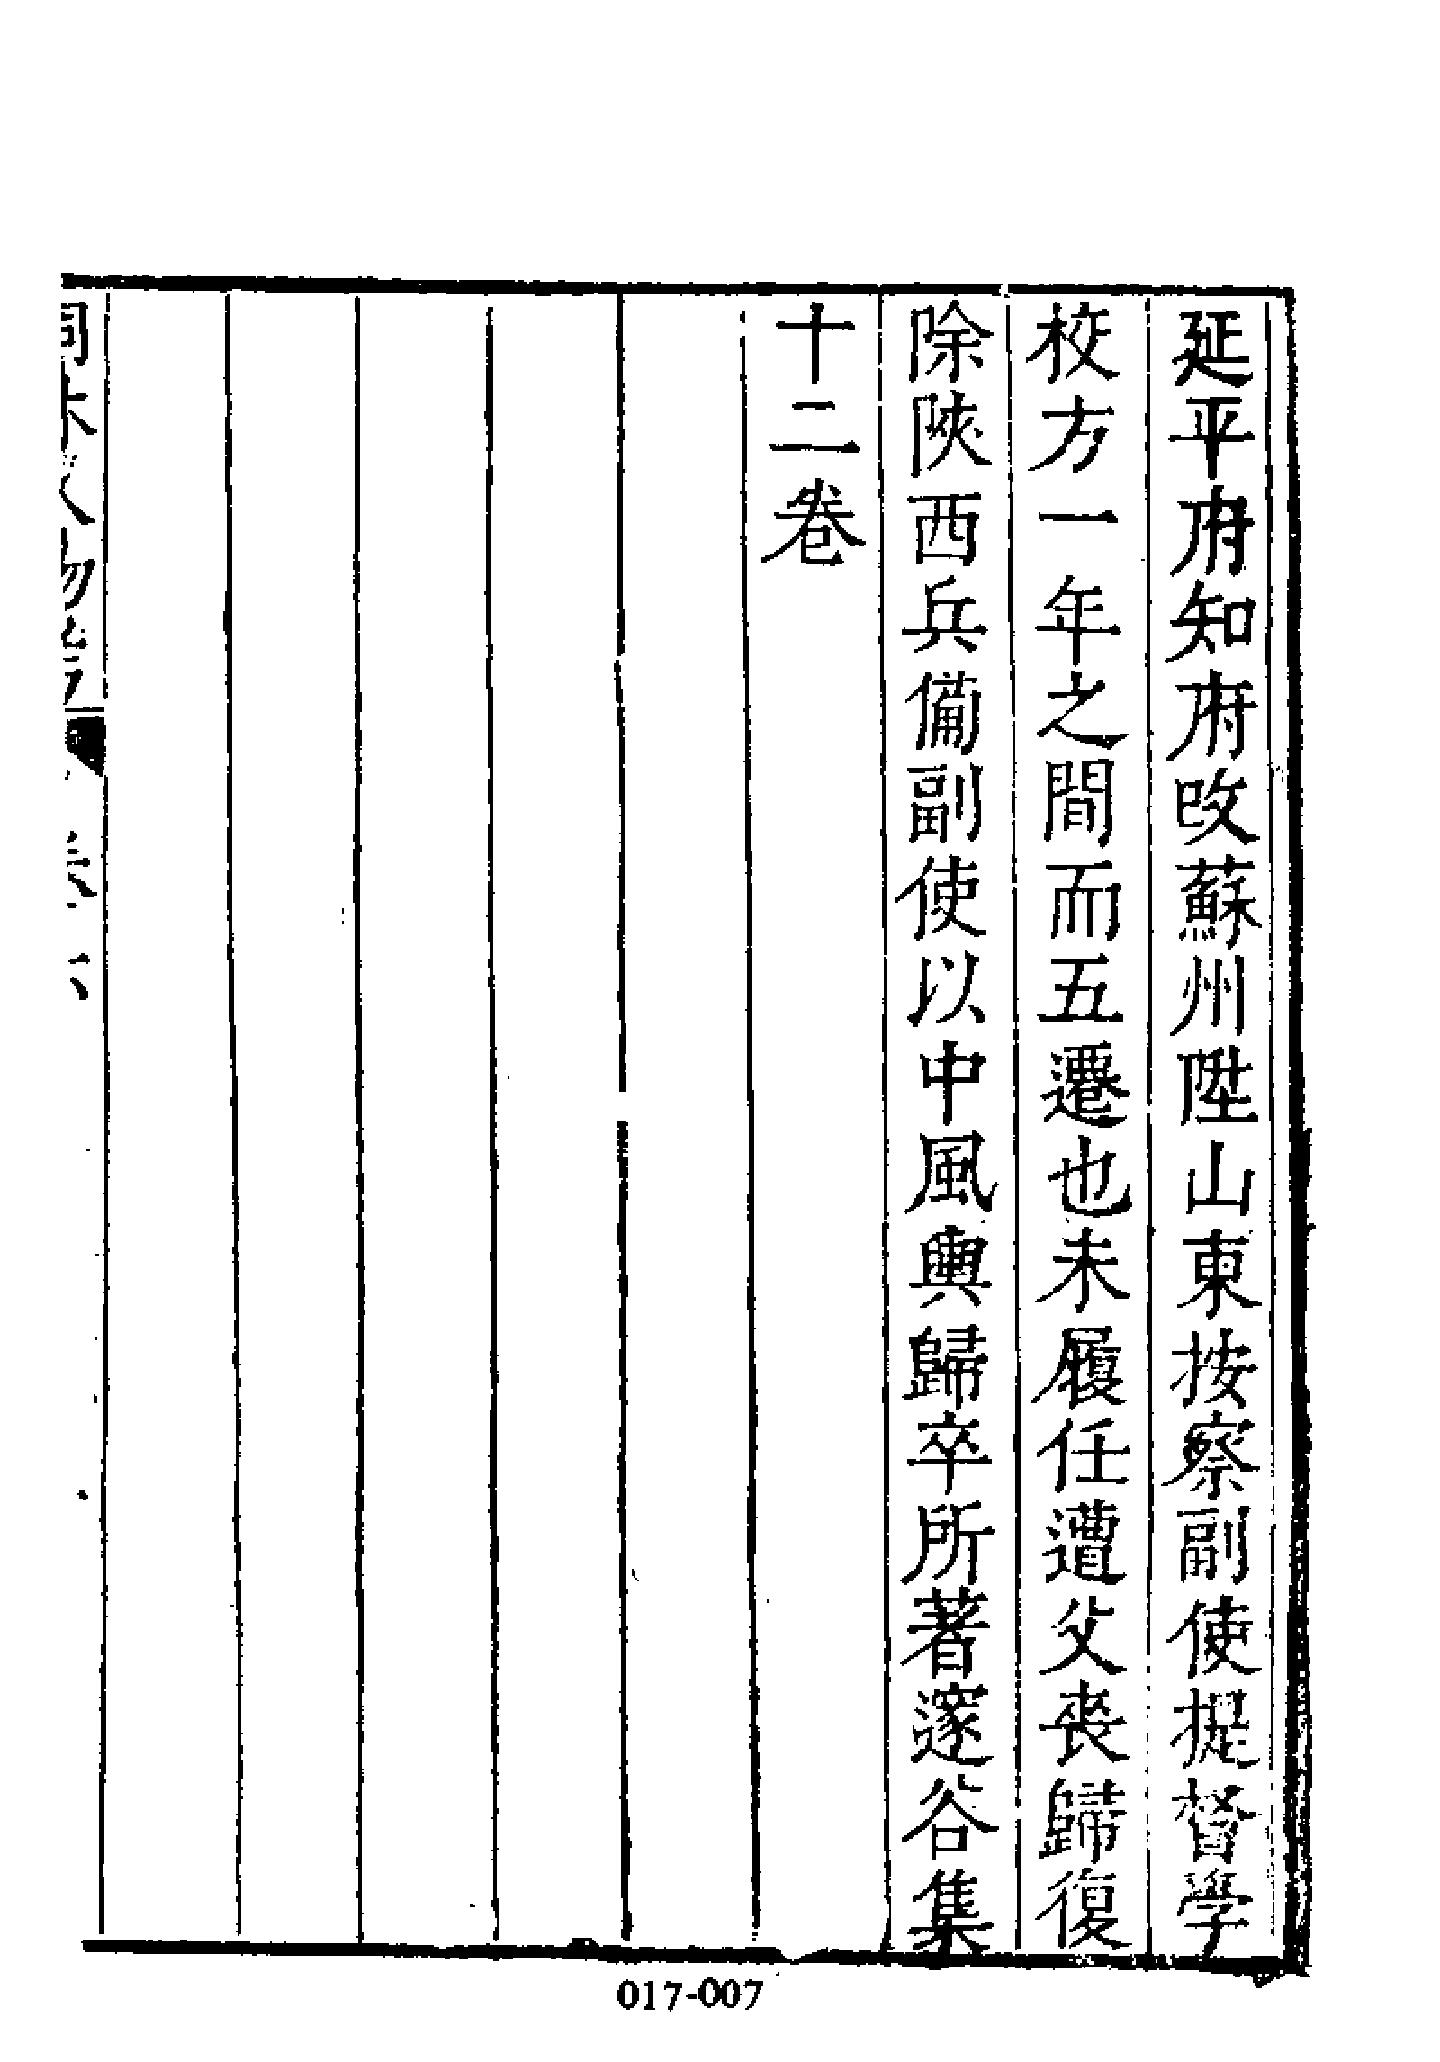 延平府知府改蘇州陞山東按察副使提督學
校方一年之間而五遷也未履任遭父喪歸復
除陜西兵備副使以中風輿歸卒所著邃谷集
十二卷
017-007